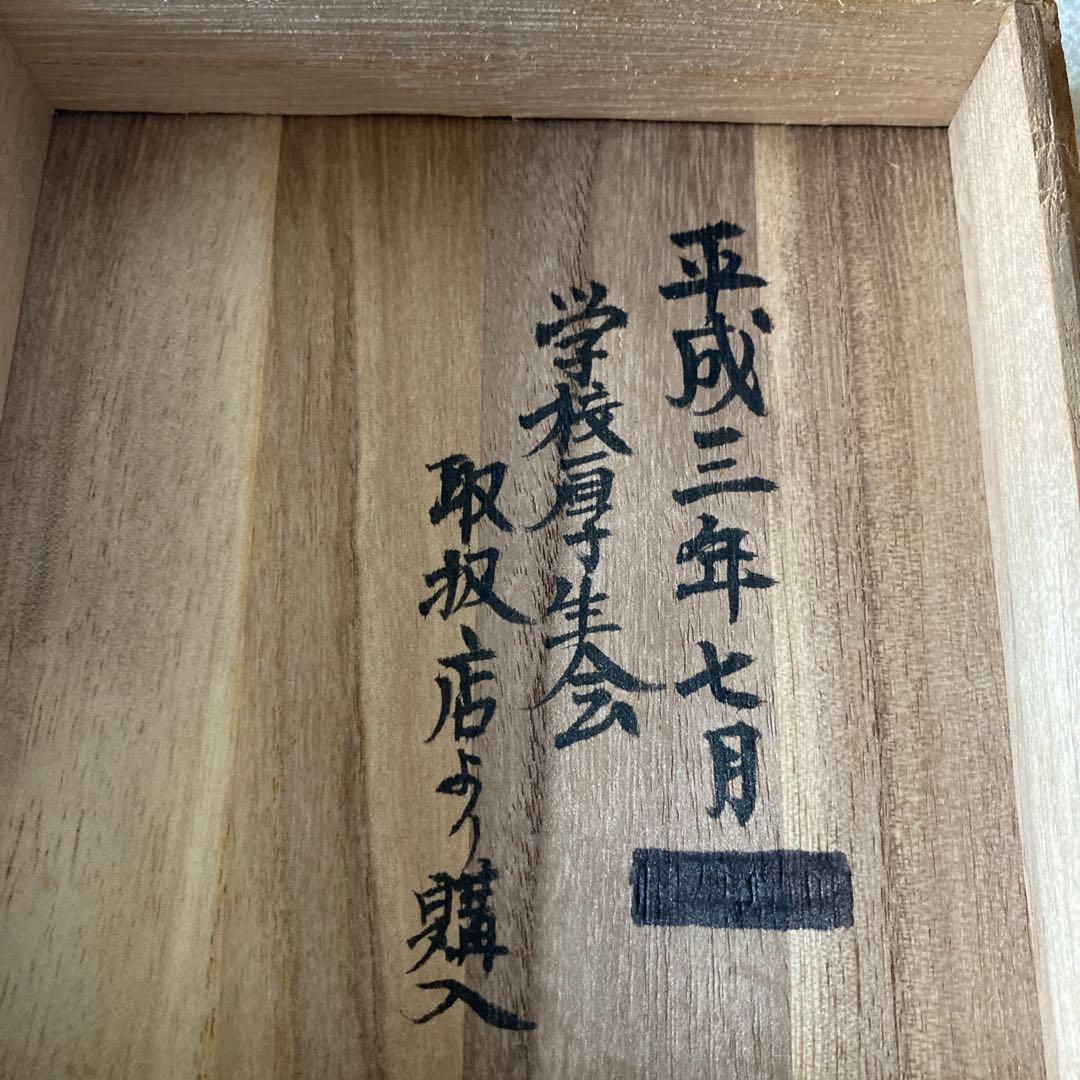 平成三年七月
学校厚生会
取扱店より購入